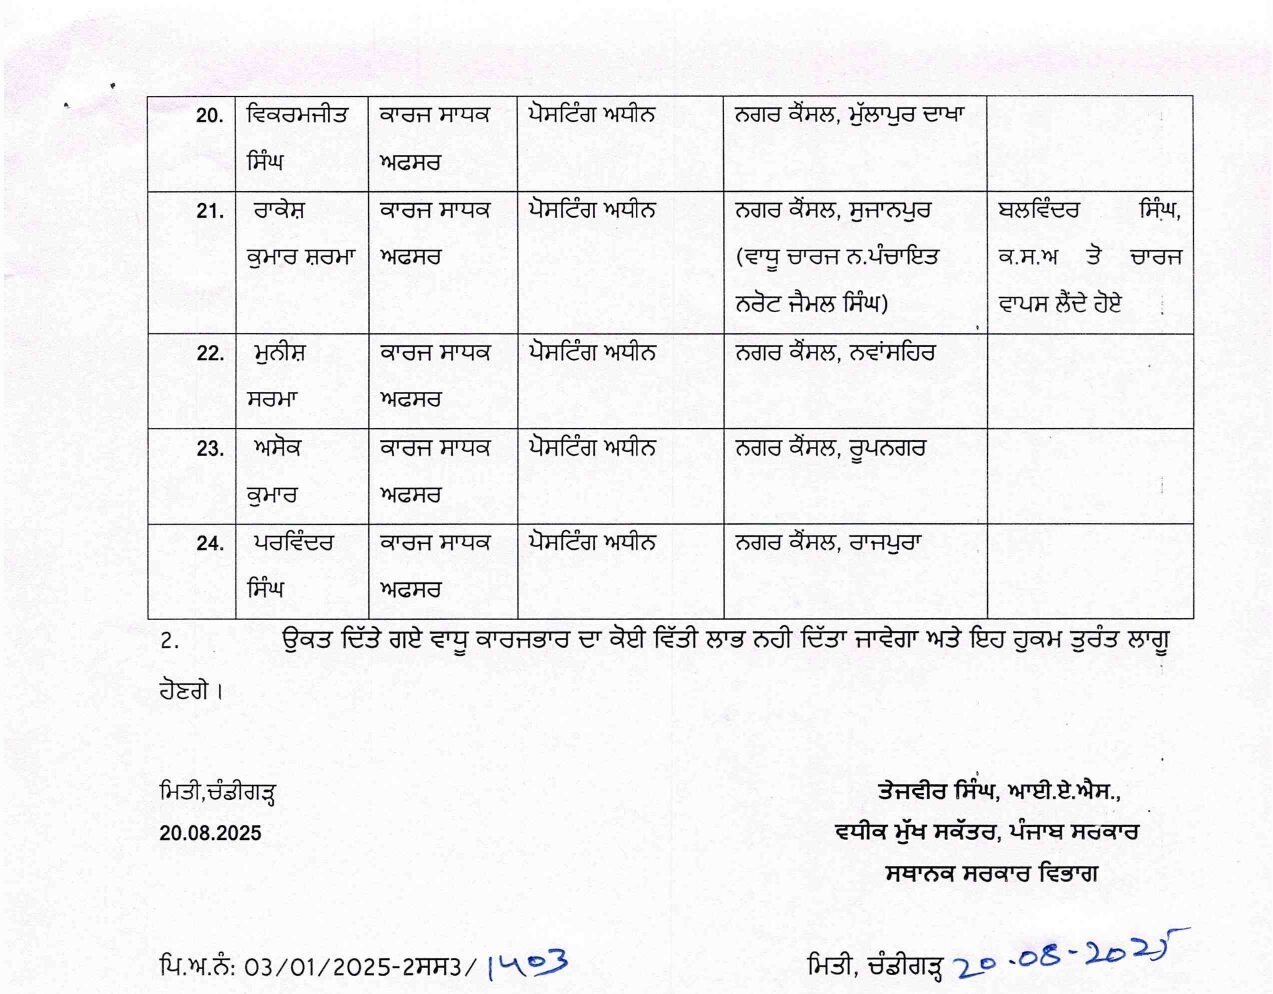 20. ਵਿਕਰਮਜੀਤ ਕਾਰਜ ਸਾਧਕ ਪੋਸਟਿੰਗ ਅਧੀਨ ਨਗਰ ਕੌਂਸਲ, ਮੁੱਲਾਪੁਰ ਦਾਖਾ
ਸਿੰਘ ਅਫਸਰ
21. ਰਾਕੇਸ਼ ਕਾਰਜ ਸਾਧਕ ਪੋਸਟਿੰਗ ਅਧੀਨ ਨਗਰ ਕੌਂਸਲ, ਸੁਜਾਨਪੁਰ ਬਲਵਿੰਦਰ ਸਿੰਘ,
ਕੁਮਾਰ ਸ਼ਰਮਾ ਅਫਸਰ (ਵਾਧੂ ਚਾਰਜ ਨ.ਪੰਚਾਇਤ ਕ.ਸ.ਅ ਤੋ ਚਾਰਜ
ਨਰੋਟ ਜੈਮਲ ਸਿੰਘ) ਵਾਪਸ ਲੈਂਦੇ ਹੋਏ
22. ਮੁਨੀਸ਼ ਕਾਰਜ ਸਾਧਕ ਪੋਸਟਿੰਗ ਅਧੀਨ ਨਗਰ ਕੌਂਸਲ, ਨਵਾਂਸਹਿਰ
ਸਰਮਾ ਅਫਸਰ
23. ਅਸੋਕ ਕਾਰਜ ਸਾਧਕ ਪੋਸਟਿੰਗ ਅਧੀਨ ਨਗਰ ਕੌਂਸਲ, ਰੂਪਨਗਰ
ਕੁਮਾਰ ਅਫਸਰ
24. ਪਰਵਿੰਦਰ ਕਾਰਜ ਸਾਧਕ ਪੋਸਟਿੰਗ ਅਧੀਨ ਨਗਰ ਕੌਂਸਲ, ਰਾਜਪੁਰਾ
ਸਿੰਘ ਅਫਸਰ
2. ਉਕਤ ਦਿੱਤੇ ਗਏ ਵਾਧੂ ਕਾਰਜਭਾਰ ਦਾ ਕੋਈ ਵਿੱਤੀ ਲਾਭ ਨਹੀ ਦਿੱਤਾ ਜਾਵੇਗਾ ਅਤੇ ਇਹ ਹੁਕਮ ਤੁਰੰਤ ਲਾਗੂ
ਹੋਣਗੇ।
ਮਿਤੀ,ਚੰਡੀਗੜ੍ਹ ਤੇਜਵੀਰ ਸਿੰਘ, ਆਈ.ਏ.ਐਸ.,
20.08.2025 ਵਧੀਕ ਮੁੱਖ ਸਕੱਤਰ, ਪੰਜਾਬ ਸਰਕਾਰ
ਸਥਾਨਕ ਸਰਕਾਰ ਵਿਭਾਗ
ਪਿ.ਅ.ਨੰ: 03/01/2025-2ਸਸ3/1403 ਮਿਤੀ, ਚੰਡੀਗੜ੍ਹ 20-08-2025